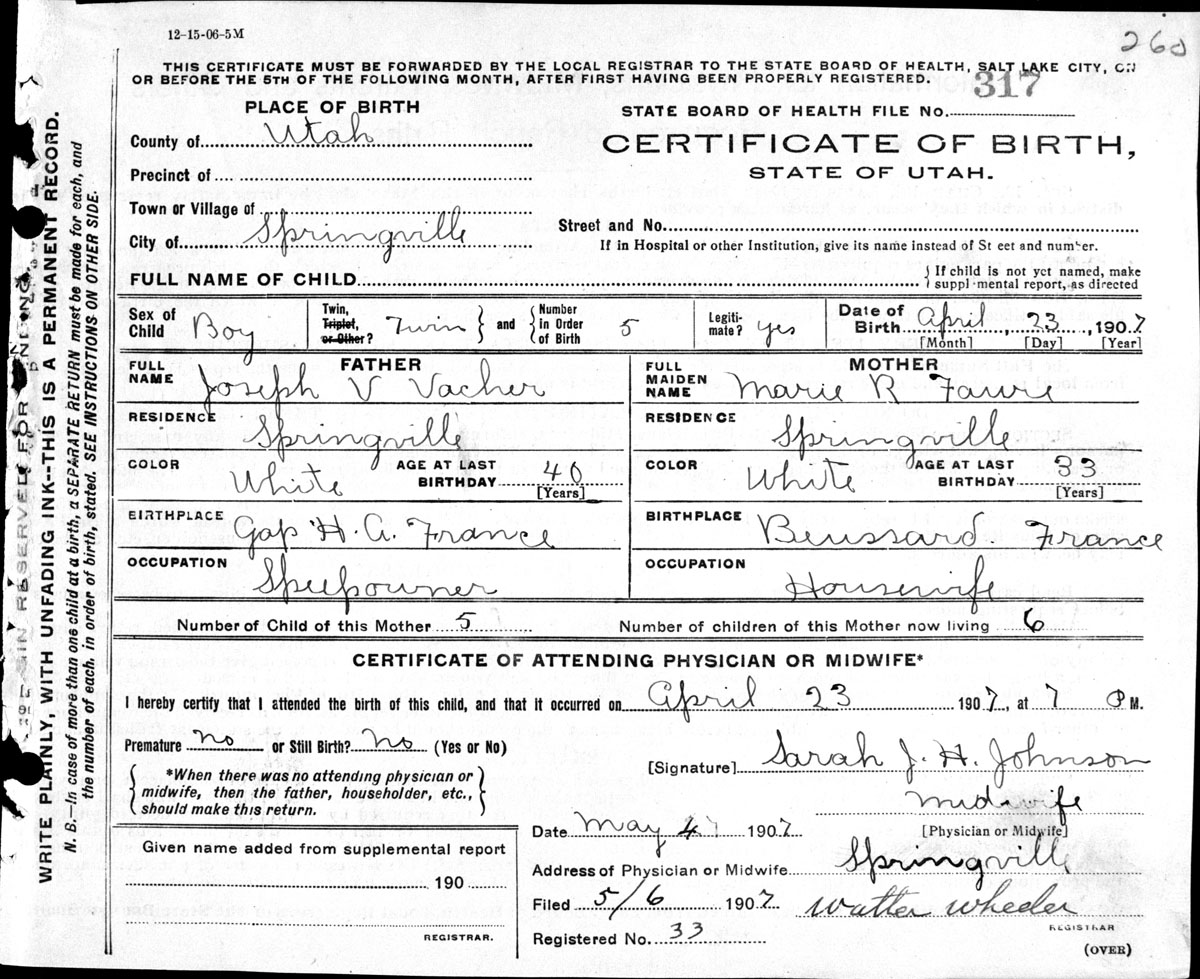 12-15-06-5M
260
THIS CERTIFICATE MUST BE FORWARDED BY THE LOCAL REGISTRAR TO THE STATE BOARD OF HEALTH, SALT LAKE CITY, ON
OR BEFORE THE 5TH OF THE FOLLOWING MONTH, AFTER FIRST HAVING BEEN PROPERLY REGISTERED.
317
PLACE OF BIRTH
STATE BOARD OF HEALTH FILE No.
County of Utah
CERTIFICATE OF BIRTH,
STATE OF UTAH.
Precinct of
Town or Village of
Street and No.
City of Springville
If in Hospital or other Institution, give its name instead of St eet and number.
FULL NAME OF CHILD
If child is not yet named, make
suppl mental report, as directed
Sex of Child Boy
Twin, Triplet, or Other? Twin and Number in Order of Birth 5
Legiti-mate? yes
Date of Birth April, 23, 1907
[Month] [Day] [Year]
FATHER
FULL NAME Joseph V Vacher
MOTHER
FULL MAIDEN NAME Marie R Faure
RESIDENCE Springville
RESIDENCE Springville
COLOR White AGE AT LAST BIRTHDAY 40 [Years]
COLOR White AGE AT LAST BIRTHDAY 33 [Years]
BIRTHPLACE Gap H. A. France
BIRTHPLACE Beussard France
OCCUPATION Speepowner
OCCUPATION Housewife
Number of Child of this Mother 5
Number of children of this Mother now living 6
CERTIFICATE OF ATTENDING PHYSICIAN OR MIDWIFE*
I hereby certify that I attended the birth of this child, and that it occurred on April 23 1907, at 7 P M.
Premature no or Still Birth? no (Yes or No)
*When there was no attending physician or
midwife, then the father, householder, etc.,
should make this return.
[Signature] Sarah J. H. Johnson
midwife
[Physician or Midwife]
Date May 4 1907
Given name added from supplemental report
190
REGISTRAR.
Address of Physician or Midwife Springville
Filed 5/6 1907 Walter Wheeler
REGISTRAR
Registered No. 33
(OVER)
WRITE PLAINLY, WITH UNFADING INK--THIS IS A PERMANENT RECORD.
N. B.—In case of more than one child at a birth, a SEPARATE RETURN must be made for each, and
the number of each, in order of birth, stated. SEE INSTRUCTIONS ON OTHER SIDE.